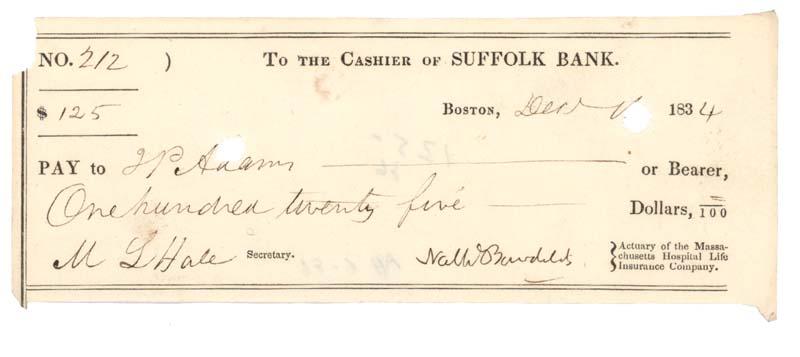 NO. 212 ) TO THE CASHIER OF SUFFOLK BANK.
$ 125 BOSTON, Dec 1834
PAY to J P Adams or Bearer,
One hundred twenty five Dollars, 100
M L Hale Secretary. Nath Bowditch Actuary of the Massa-
chusetts Hospital Life
Insurance Company.